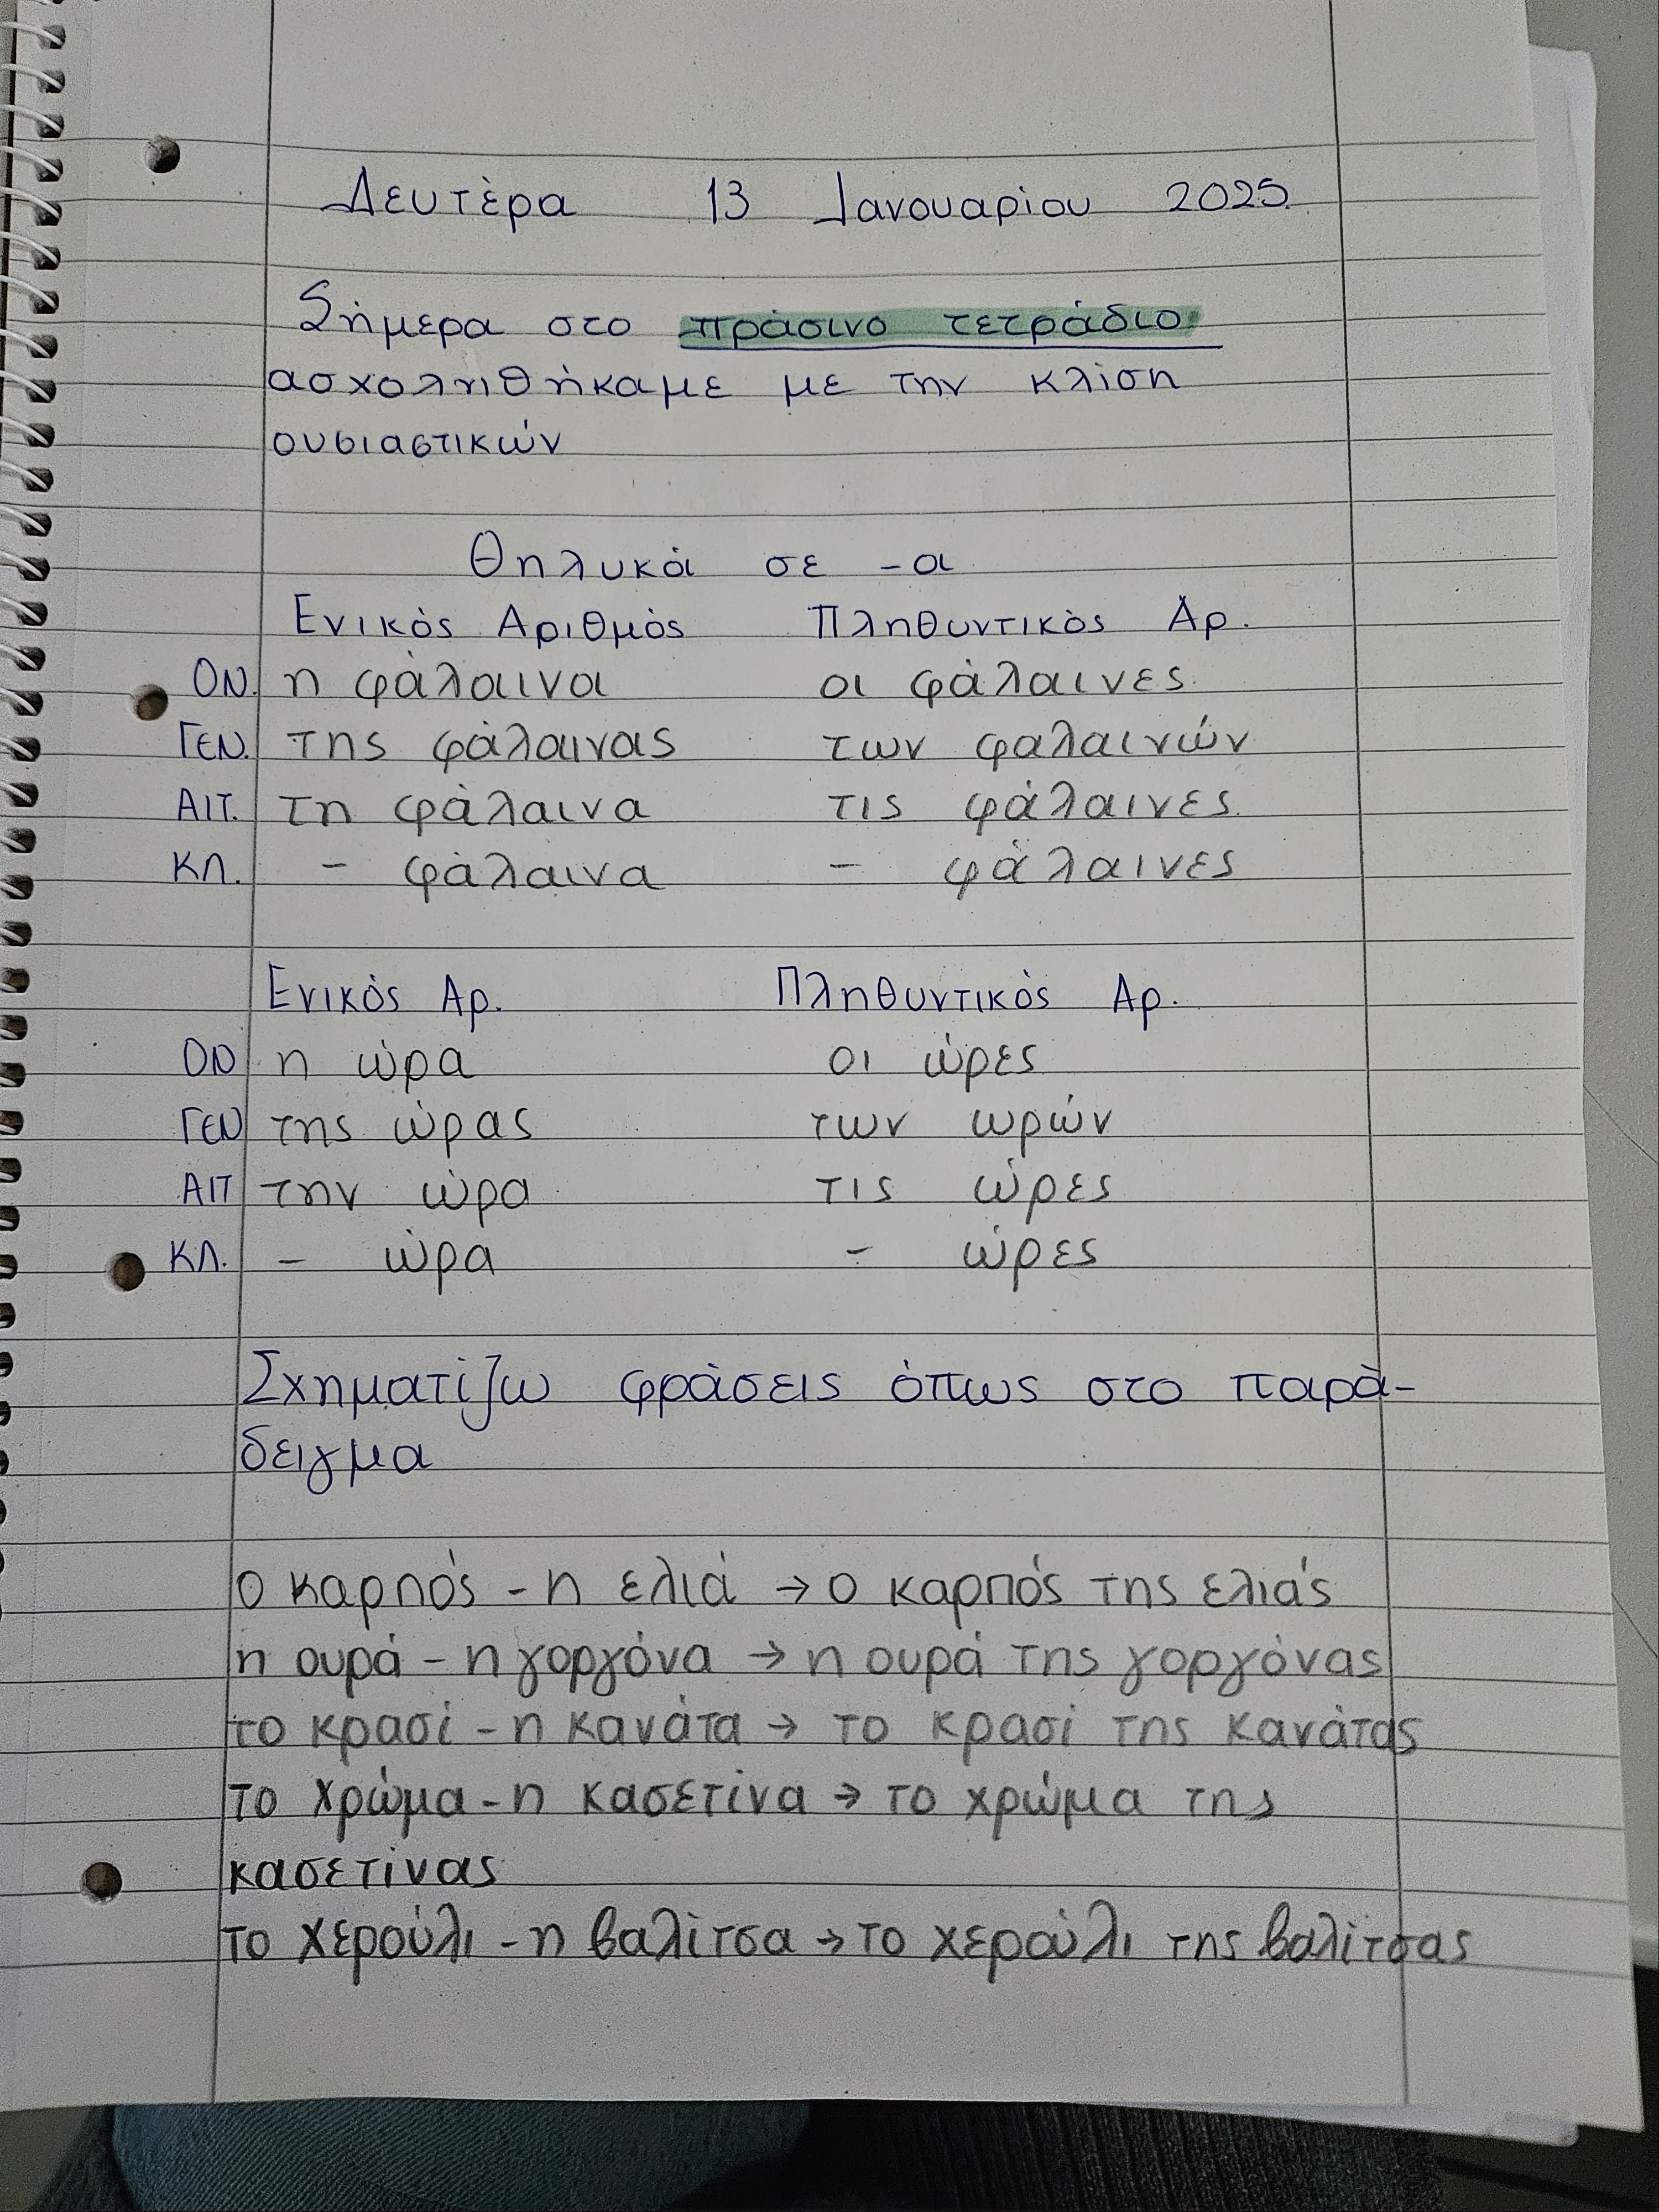 Δευτέρα 13 Ιανουαρίου 2025
Σήμερα στο πράσινο τετράδιο
ασχοληθήκαμε με την κλίση
ουσιαστικών
Θηλυκά σε -α
Ενικός Αριθμός Πληθυντικός Αρ.
ΟΝ. η φάλαινα οι φάλαινες
ΓΕΝ. της φάλαινας των φαλαινών
ΑΙΤ. τη φάλαινα τις φάλαινες
ΚΛ. - φάλαινα - φάλαινες
Ενικός Αρ. Πληθυντικός Αρ.
ΟΝ η ώρα οι ώρες
ΓΕΝ της ώρας των ωρών
ΑΙΤ την ώρα τις ώρες
ΚΛ. - ώρα - ώρες
Σχηματίζω φράσεις όπως στο παρά-
δειγμα
ο καρπός - η ελιά → ο καρπός της ελιάς
η ουρά - η γοργόνα → η ουρά της γοργόνας
το κρασί - η κανάτα → το κρασί της κανάτας
το χρώμα - η κασετίνα → το χρώμα της
κασετίνας
το χερούλι - η βαλίτσα → το χερούλι της βαλίτσας